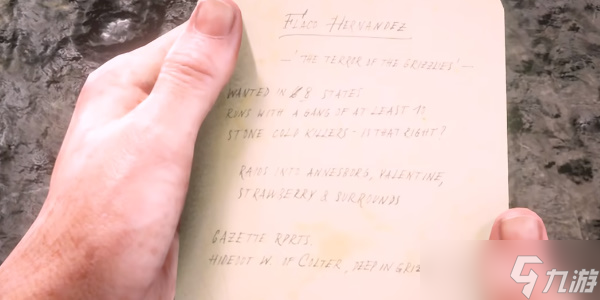 FLACO HERNANDEZ
— 'THE TERROR OF THE GRIZZLIES' —
WANTED IN 8 STATES
RUNS WITH A GANG OF AT LEAST 11
STONE COLD KILLERS - IS THAT RIGHT?
RAIDS INTO ANNESBURG, VALENTINE,
STRAWBERRY & SURROUNDS
GAZETTE RPRTS.
HIDEOUT W. OF COLTER, DEEP IN GRIZ
九游